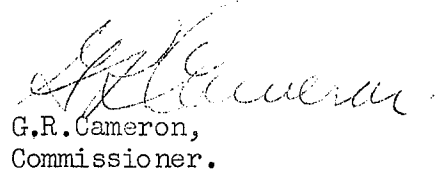 GRCameron
G.R.Cameron,
Commissioner.